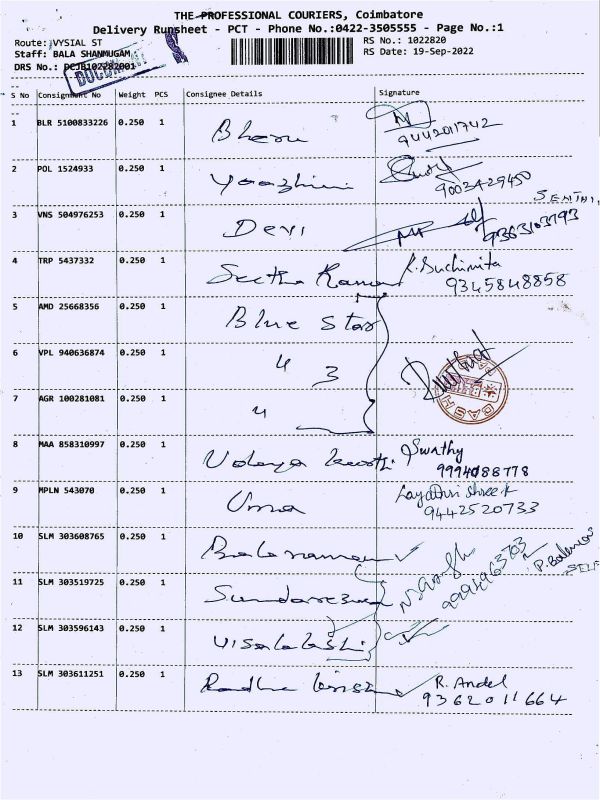 THE PROFESSIONAL COURIERS, Coimbatore
Delivery Runsheet - PCT - Phone No.:0422-3505555 - Page No.:1
Route: VYSIAL ST
Staff: BALA SHANMUGAM
DRS No.: PCJB102282001
RS No.: 1022820
RS Date: 19-Sep-2022
DOCUMENT
S No Consignment No Weight PCS Consignee Details Signature
1 BLR 5100833226 0.250 1
9442011742
2 POL 1524933 0.250 1 Yoozhini
9003429450
3 VNS 504976253 0.250 1 Devi
9363103793
4 TRP 5437332 0.250 1 Seetha Raman K. Suchimita
9345848858
5 AMD 25668356 0.250 1 Blue Star
6 VPL 940636874 0.250 1 " 3
7 AGR 100281081 0.250 1 "
CASH
8 MAA 858310997 0.250 1 Udaya Swathy
9994088778
9 MPLN 543070 0.250 1 Uma
9442520733
10 SLM 303608765 0.250 1 Balaraman
9994963703
SELF
11 SLM 303519725 0.250 1
12 SLM 303596143 0.250 1 Visalakshi
13 SLM 303611251 0.250 1 Radha R. Andel
9362011664